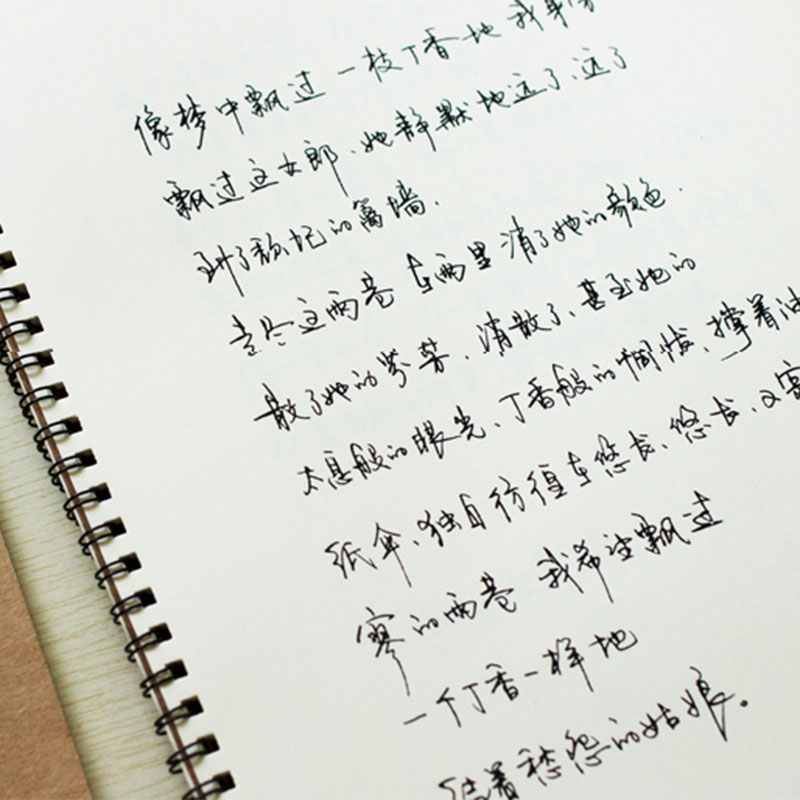 像梦中飘过 一枝丁香地 我身
飘过这女郎、她静默地远了、远了
到了颓圮的篱墙.
走尽这雨巷 在雨里 消了她的颜色.
散了她的芬芳、消散了、甚至她的
太息般的眼光、丁香般的惆怅、撑着油
纸伞、独自彷徨在悠长、悠长、又寂
寥的雨巷 我希望飘过
一个丁香一样地
结着愁怨的姑娘。